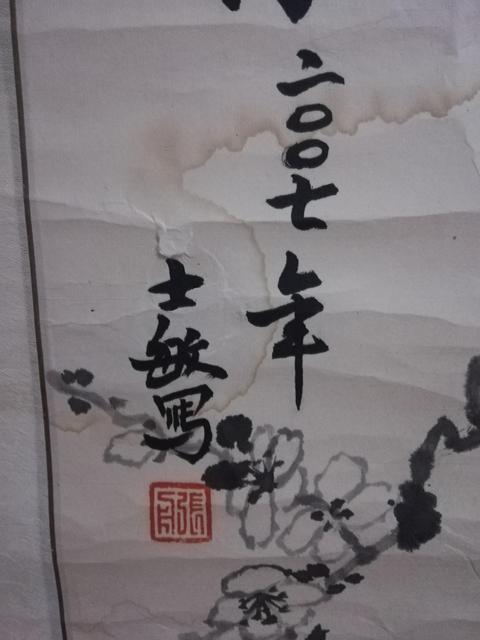 二〇〇七年
士敏写
張